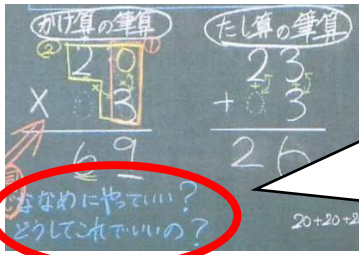 かけ算の筆算
② ①
2
× 3
6 9
たし算の筆算
2 3
+ 0 3
2 6
ななめにやっていい?
どうしてこれでいいの?
20+20+2